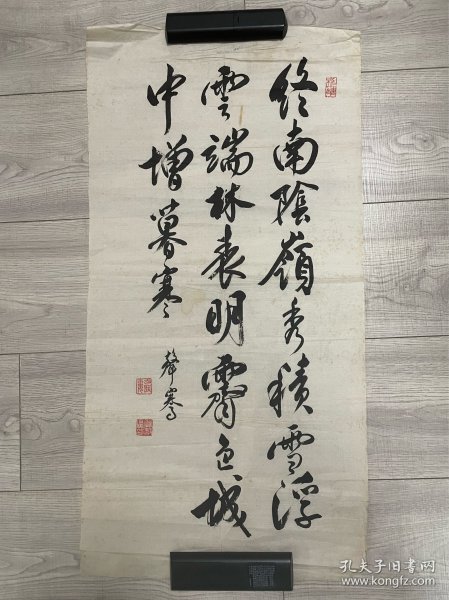 終南陰嶺秀積雪浮
雲端林表明霽色城
中增暮寒
孔夫子旧书网
www.kongfz.com